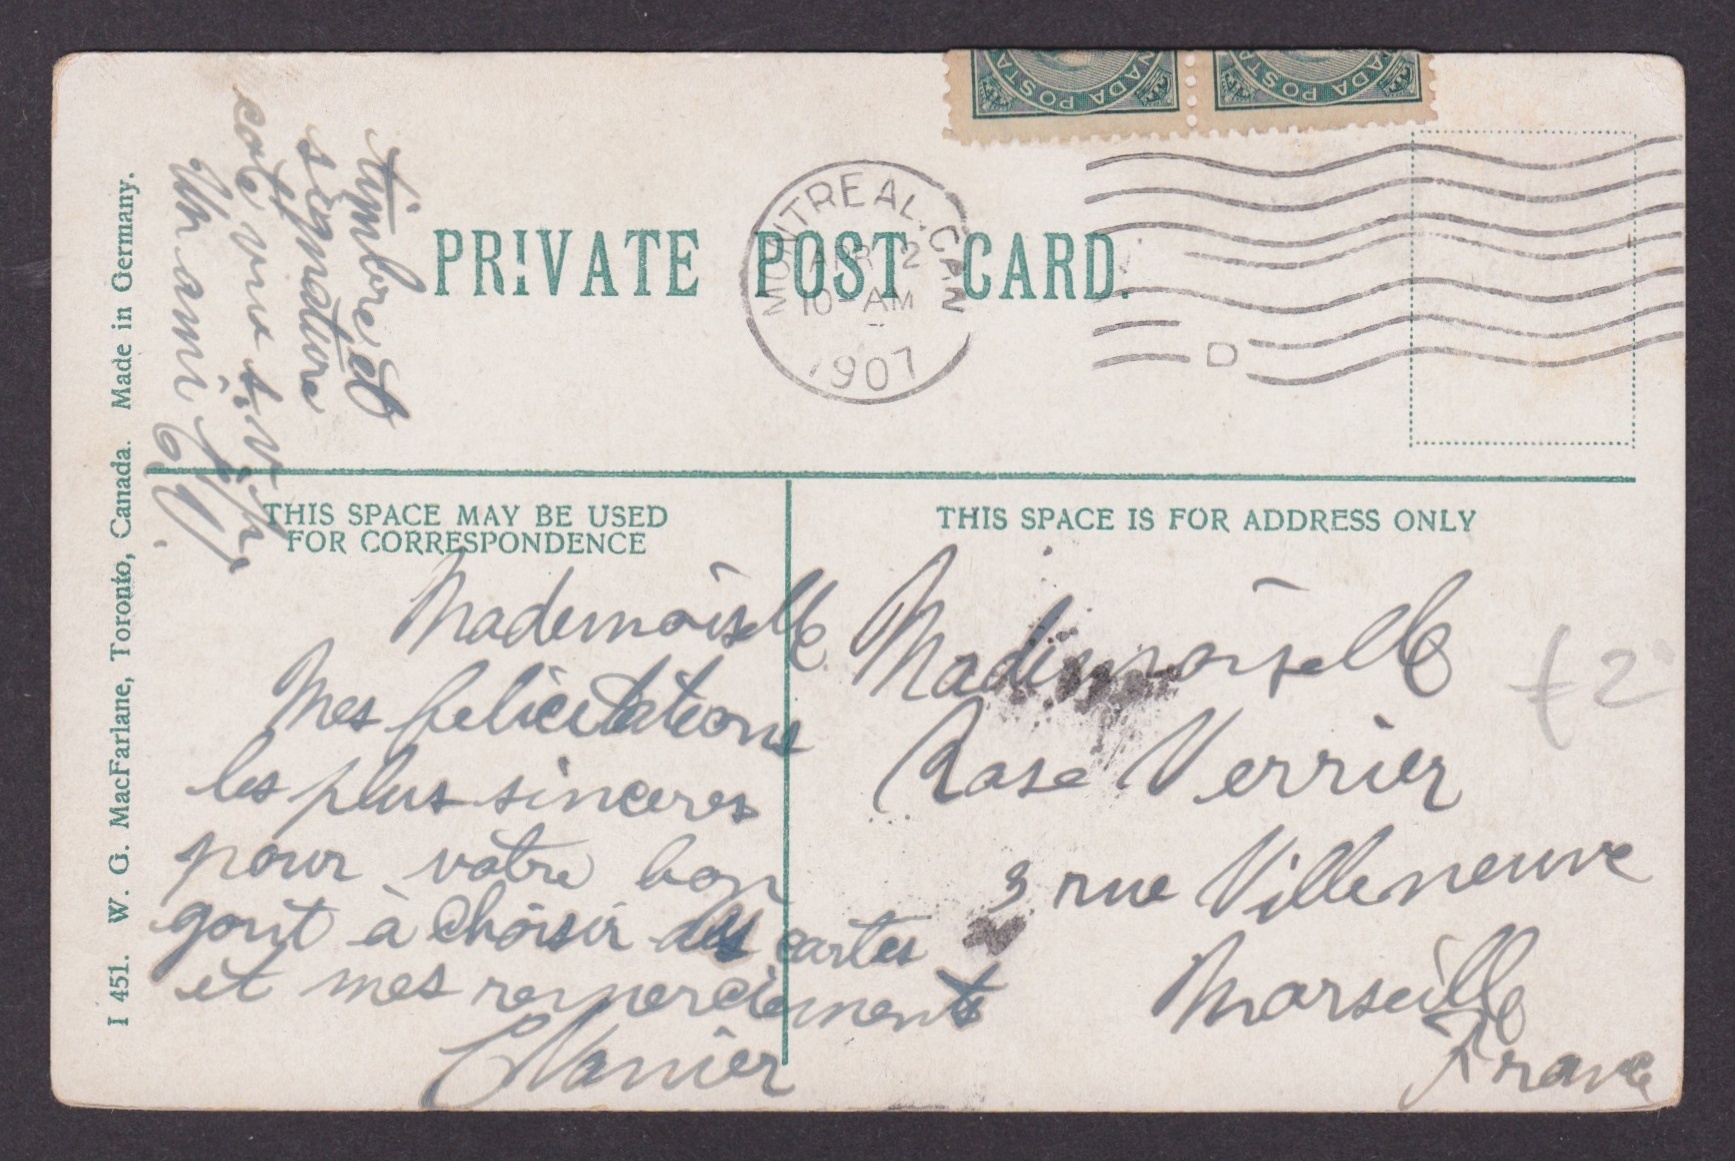 PRIVATE POST CARD.
MONTREAL. CAN
APR 12
10 - AM
1907
D
timbre et
signature
cote vue s.v.p.
Un ami
THIS SPACE MAY BE USED
FOR CORRESPONDENCE
Mademoiselle
Mes felicitations
les plus sinceres
pour votre bon
gout à choisir des cartes
et mes remerciements
THIS SPACE IS FOR ADDRESS ONLY
Mademoiselle
Rose Verrier
3 rue Villeneuve
Marseille
France
£2
I 451. W. G. MacFarlane, Toronto, Canada. Made in Germany.
CANADA POSTA
NADA POSTA